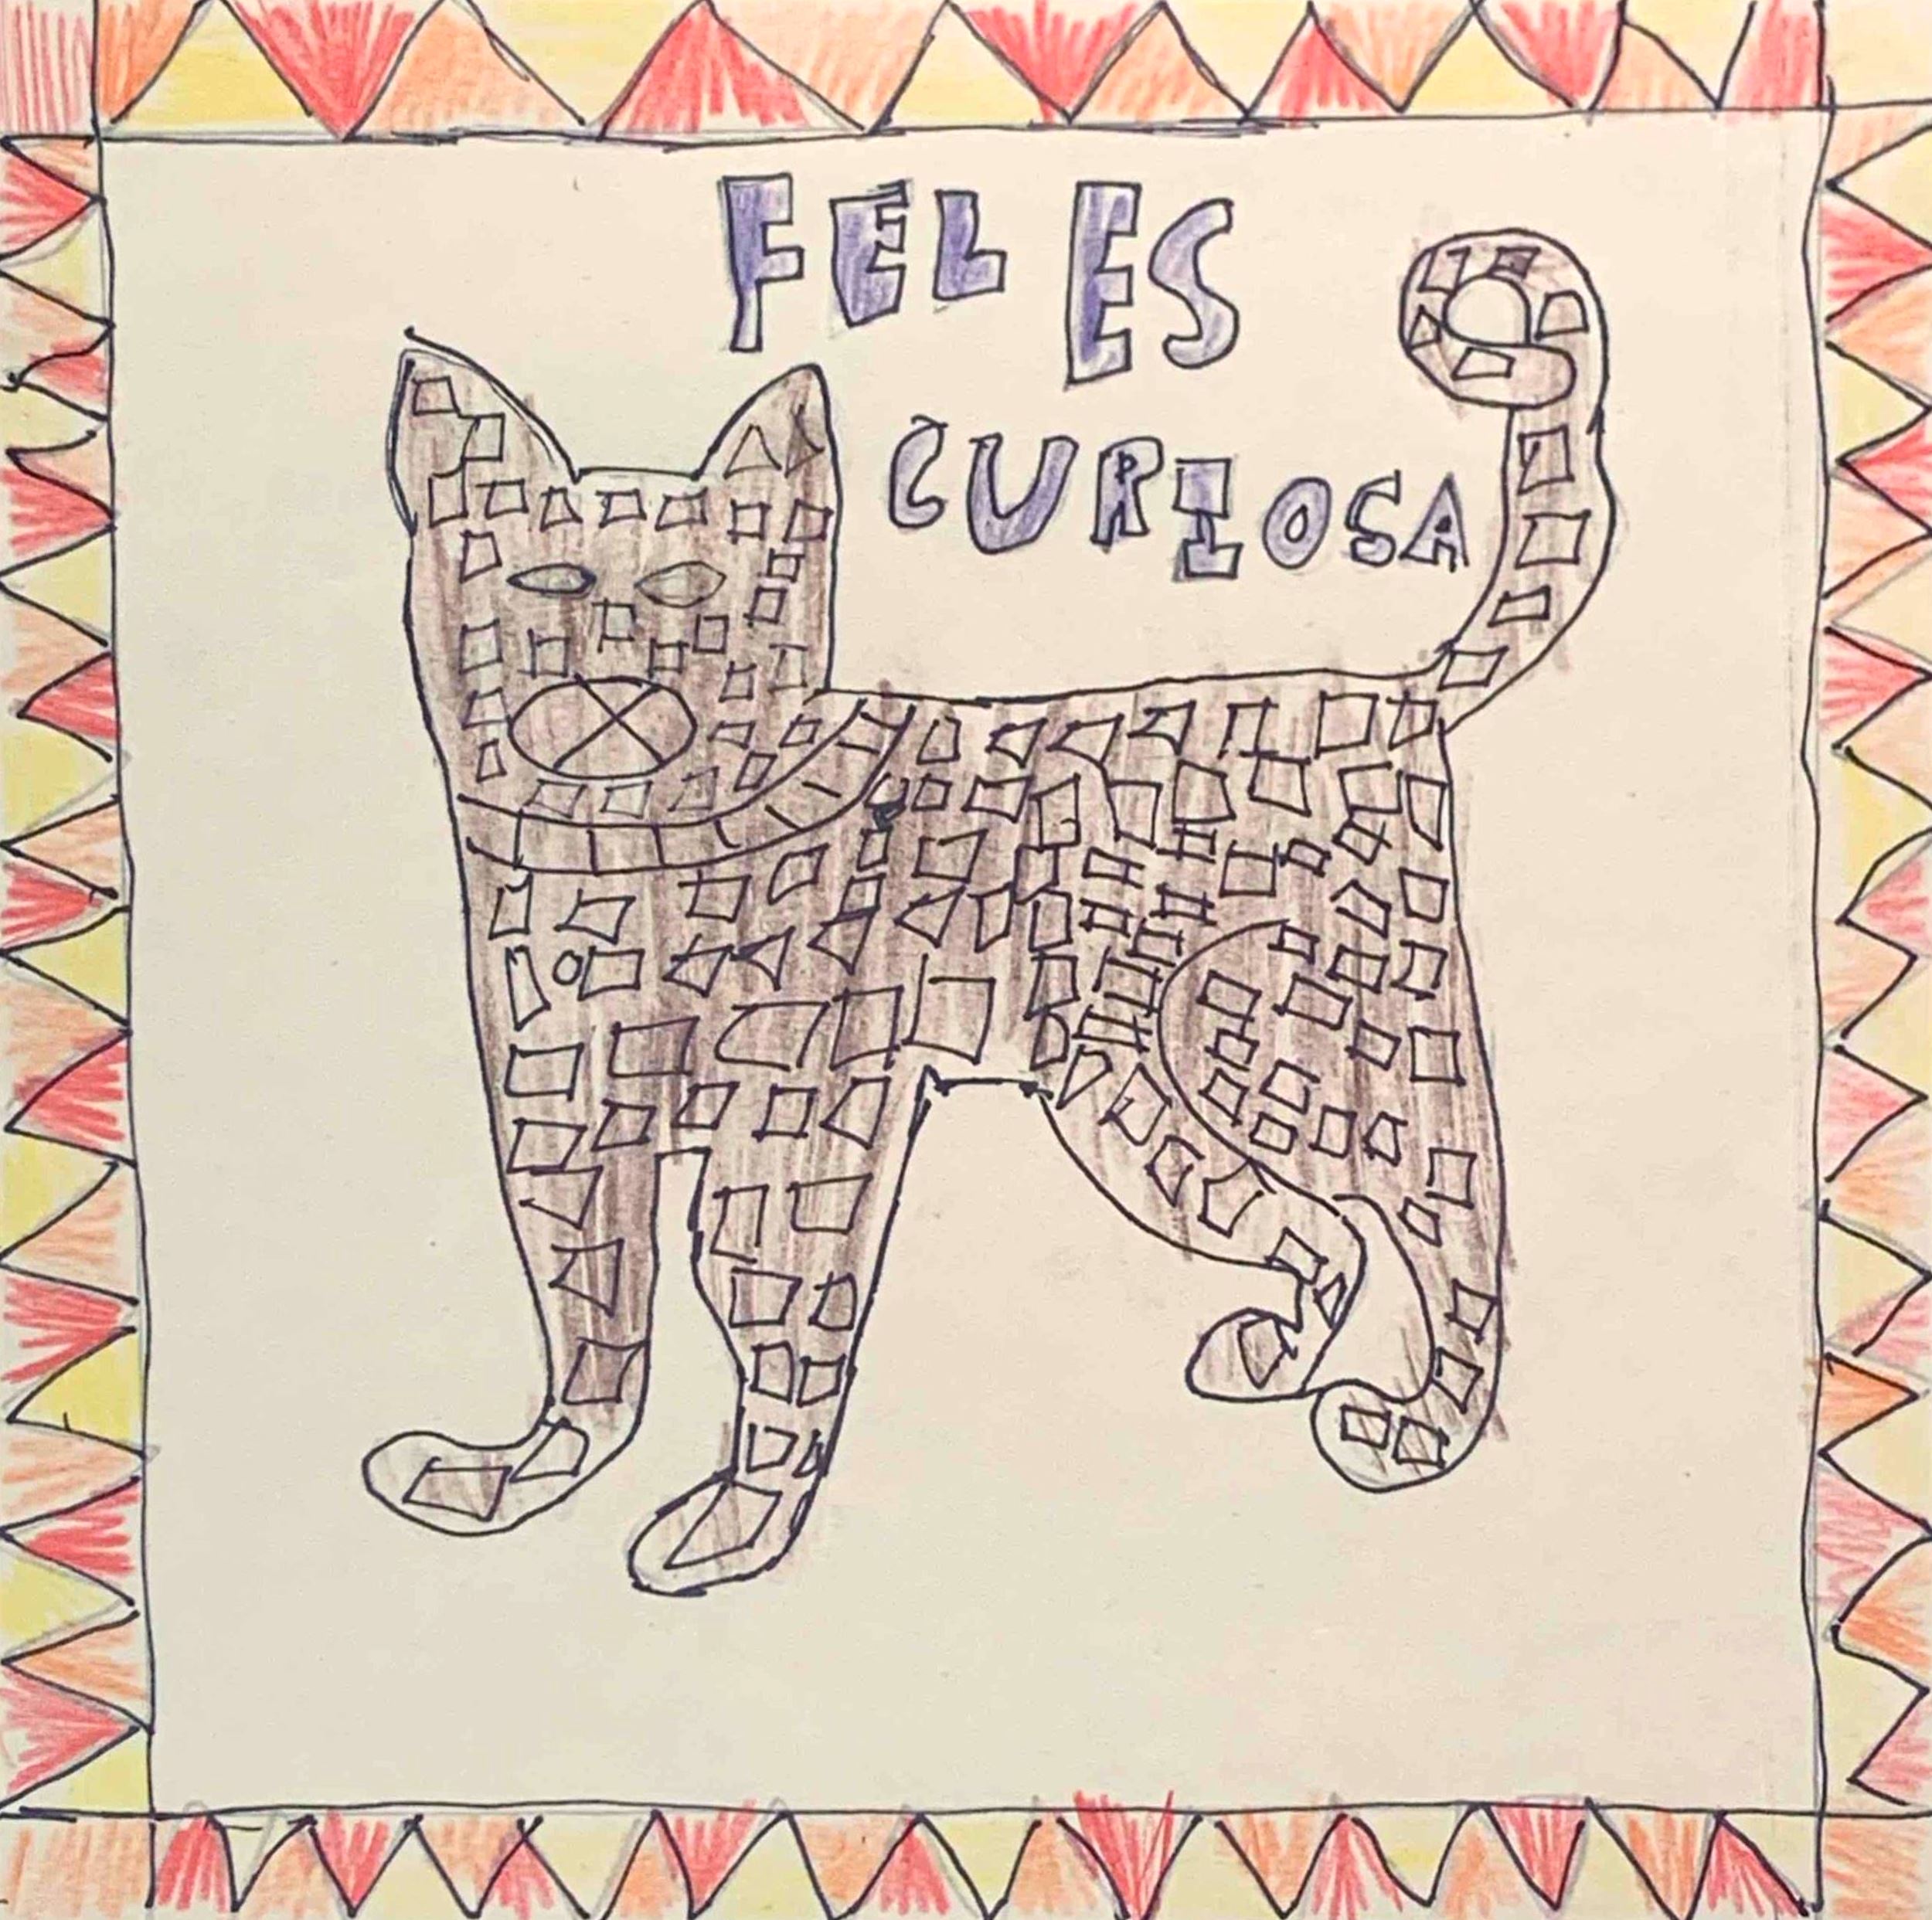 FELES
CURIOSA